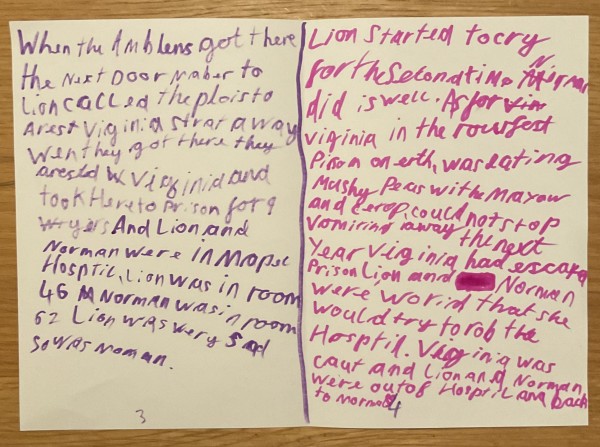 When the Amblens got there
the Next Door Naber to
Lion called the ploisto
Arest Virginia strat away
Wen they got there they
arested Virginia and
took Here to Prison for 9
yers And Lion and
Norman were in Mapel
Hosptil, Lion was in room
46 Norman was in room
62 Lion was very sad
so was Noman.
3
Lion started to cry
for the second time Norman
did is well. As for
virginia in the rowfest
Pison on erth, was eating
Mushy Peas withe Mayow
and cerop, could not stop
vomiring away the next
Year Virginia had escapd
Prison Lion and Norman
were worid that she
would try to rob the
Hosptil. Virginia was
caut and Lion and Norman
were out of Hosptil and back
to normal
4